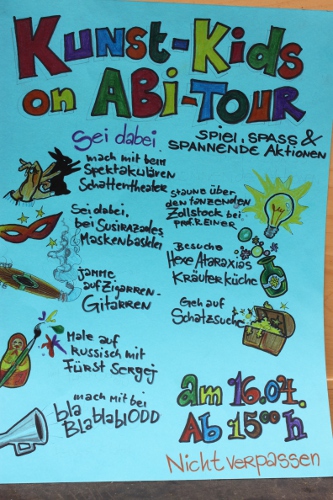 KUNST-KIDS
on ABi-TOUR
Sei dabei
SPIEL, SPASS &
SPANNENDE AKTIONEN
mach mit beim
Spektakulären
Schattentheater
Staune über
den tanzenden
Zollstock bei
Prof. REINER
Sei dabei,
bei Susirazades
Maskenbasklei
Besuche
Hexe Ataraxias
Kräuterküche
jamme
auf Zigarren-
Gitarren
Geh auf
Schatzsuche
Male auf
Russisch mit
Fürst Sergej
mach mit bei
bla
BlablablODD
am 16.04.
Ab 15⁰⁰ h
Nicht verpassen